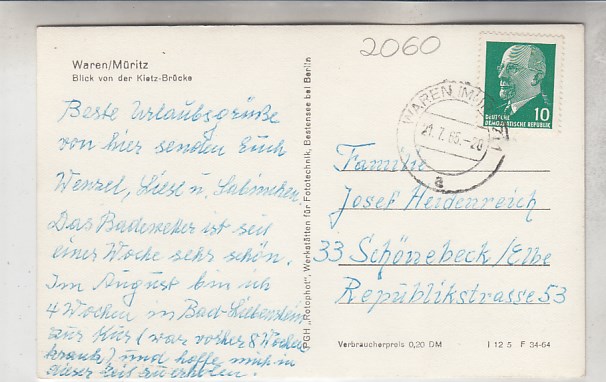 Waren/Müritz
Blick von der Kietz-Brücke
2060
Beste Urlaubsgrüße
von hier senden Euch
Wenzel, Liesl u. Sabinchen.
Das Badewetter ist seit
einer Woche sehr schön.
Im August bin ich
4 Wochen in Bad-Liebenstein
zur Kur (war vorher 8 Wochen
krank) und hoffe mich in
dieser Zeit zu erholen.
PGH „Rotophot", Werkstätten für Fototechnik, Bestensee bei Berlin
10
DEUTSCHE
DEMOKRATISCHE REPUBLIK
WAREN (MÜRITZ)
21.7.65.-20
a
Familie
Josef Heidenreich
33 Schönebeck/Elbe
Republikstrasse 53
Verbraucherpreis 0,20 DM
I 12 5 F 34-64